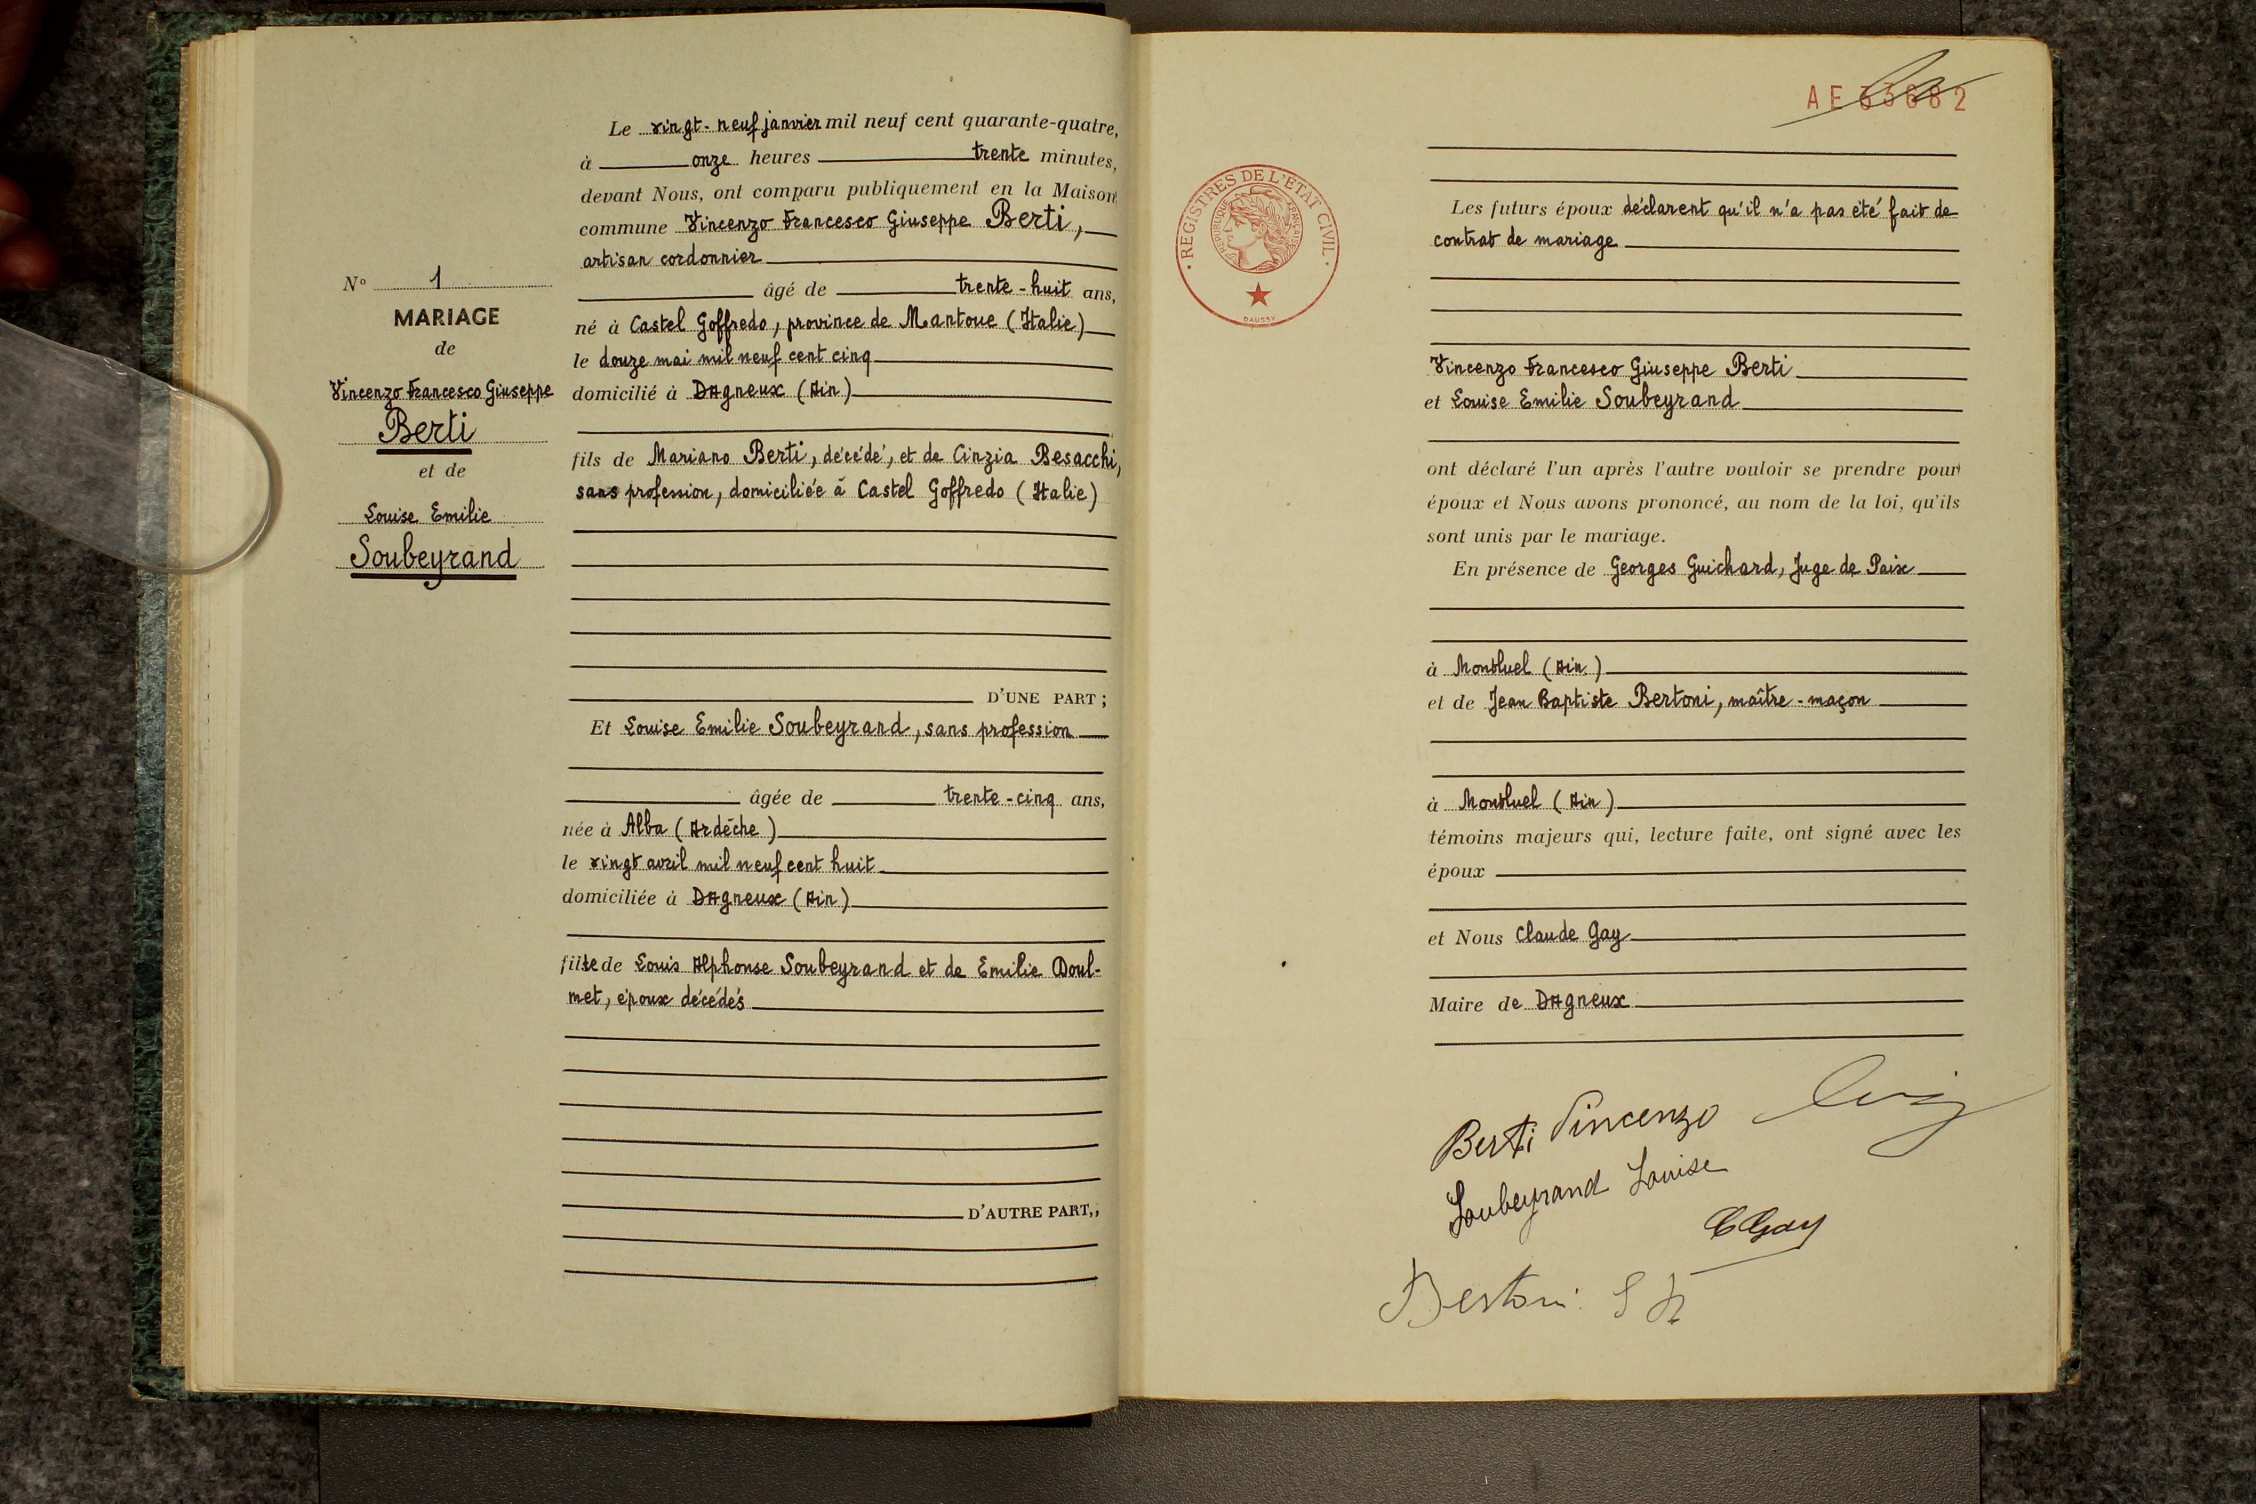 Le vingt-neuf janvier mil neuf cent quarante-quatre,
à onze heures trente minutes,
devant Nous, ont comparu publiquement en la Maison
commune Vincenzo Francesco Giuseppe Berti,
artisan cordonnier
âgé de trente-huit ans,
né à Castel Goffredo, province de Mantoue (Italie)
le douze mai mil neuf cent cinq
domicilié à Dagneux (Ain)
fils de Mariano Berti, décédé, et de Cinzia Besacchi,
sans profession, domiciliée à Castel Goffredo (Italie)
D'UNE PART ;
Et Louise Emilie Soubeyrand, sans profession
âgée de trente-cinq ans,
née à Alba (Ardèche)
le vingt avril mil neuf cent huit
domiciliée à Dagneux (Ain)
fille de Louis Alphonse Soubeyrand et de Emilie Doul-
met, époux décédés
D'AUTRE PART,;
N° 1
MARIAGE
de
Vincenzo Francesco Giuseppe
Berti
et de
Louise Emilie
Soubeyrand
AE
REGISTRES DE L'ETAT CIVIL
REPUBLIQUE FRANÇAISE
DAUSSY
Les futurs époux déclarent qu'il n'a pas été fait de
contrat de mariage
Vincenzo Francesco Giuseppe Berti
et Louise Emilie Soubeyrand
ont déclaré l'un après l'autre vouloir se prendre pour
époux et Nous avons prononcé, au nom de la loi, qu'ils
sont unis par le mariage.
En présence de Georges Guichard, Juge de Paix
à Montluel (Ain)
et de Jean Baptiste Bertoni, maître-maçon
à Montluel (Ain)
témoins majeurs qui, lecture faite, ont signé avec les
époux
et Nous Claude Gay
Maire de Dagneux
Berti Vincenzo
Soubeyrand Louise
C Gay
Bertoni